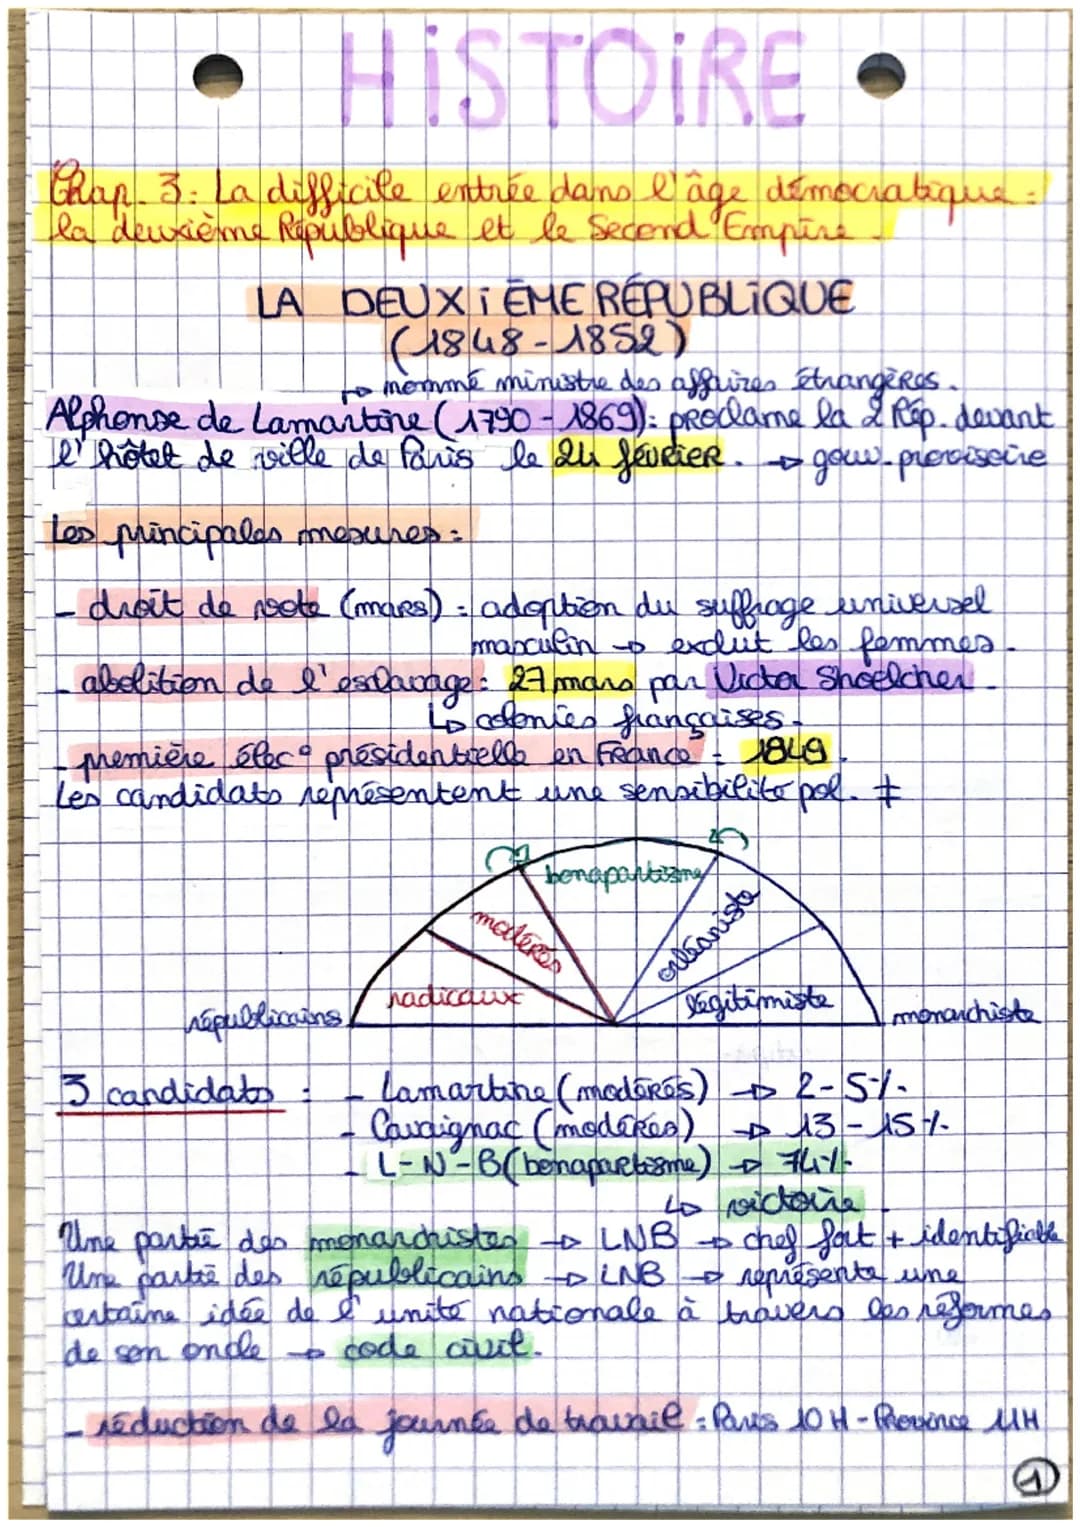 HiSTOiRE
Chap. 3: La difficile entrée dans l'âge démocratique:
la deuxième République et le Second Empire.
LA DEUXiÈME RÉPUBLiQUE
(1848-1852)
→ nommé ministre des affaires étrangères.
Alphonse de Lamartine (1790-1869): proclame la 2 Rép. devant
l'hôtel de ville de Paris le 24 février. → gouv. provisoire
Les principales mesures:
- droit de vote (mars): adoption du suffrage universel
masculin → exclut les femmes.
- abolition de l'esclavage: 27 mars par Victor Shoelcher.
↳ colonies françaises.
- première élec° présidentielle en France: 1849.
Les candidats représentent une sensibilité pol. ≠
bonapartisme
modérés
orléaniste
radicaux
légitimiste
républicains
monarchiste
3 candidats: - Lamartine (modérés) → 2-5%.
- Cavaignac (modérés) → 13-15%.
- L-N-B (bonapartisme) → 74%.
↳ victoire.
Une partie des monarchistes → LNB → chef fort + identifiable
Une partie des républicains → LNB → représente une
certaine idée de l'unité nationale à travers les réformes
de son oncle → code civil.
- réduction de la journée de travail: Paris 10H - Province 11H
1